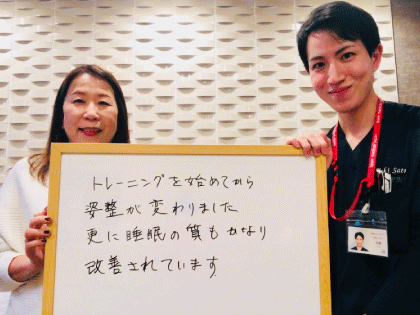 トレーニングを始めてから
姿整が変わりました
更に睡眠の質もかなり
改善されています